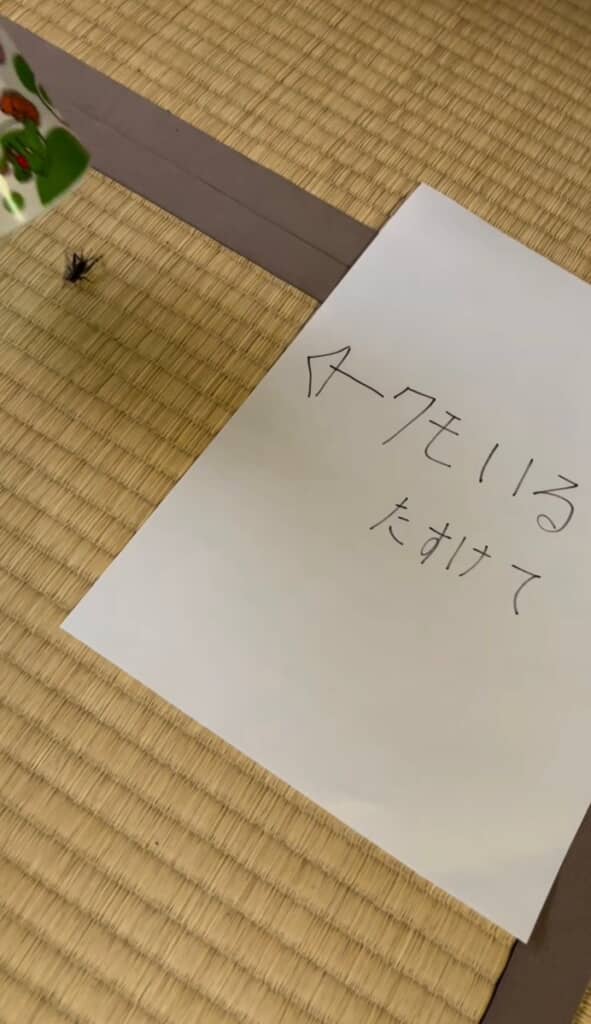 ←クモいる
たすけて